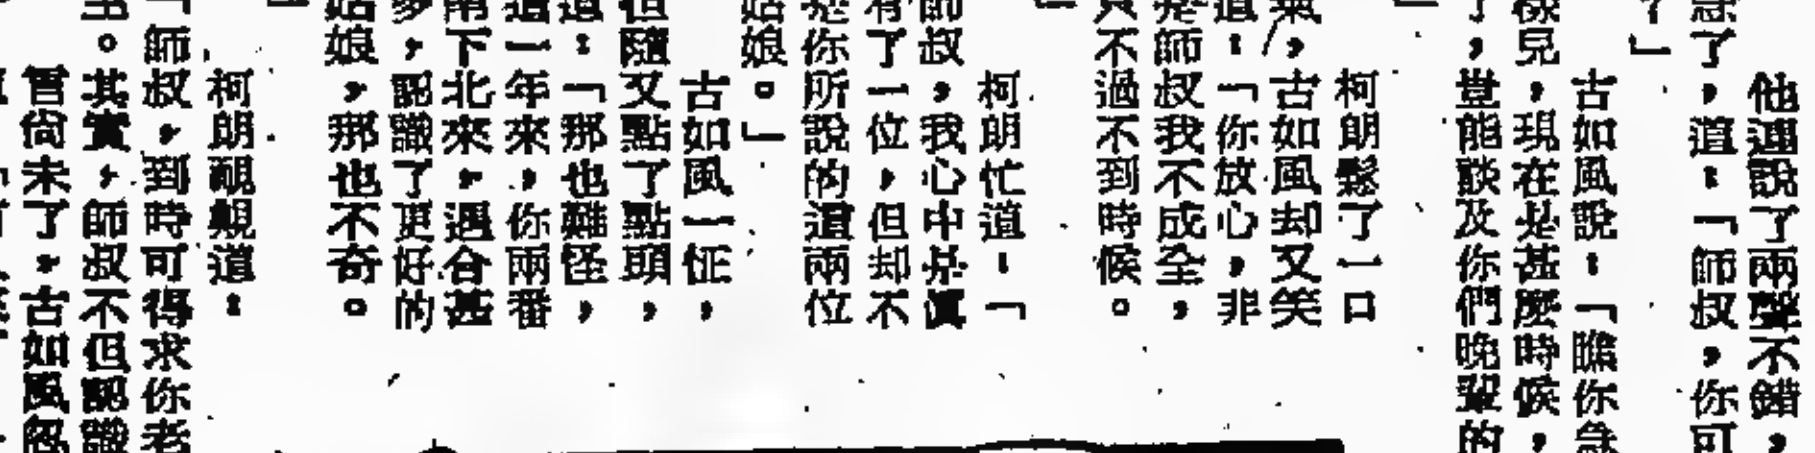 他連說了兩聲不錯，
急了，道：「師叔，你可
？」
古如風說：「瞧你急
樣兒，現在是甚麼時候，
了，豈能談及你們晚輩的
柯朗鬆了一口
氣，古如風却又笑
道：「你放心，非
是師叔我不成全，
真不過不到時候。
柯朗忙道：「
師叔，我心中是真
有了一位，但却不
是你所說的這兩位
姑娘。」
古如風一怔，
但隨又點了點頭，
道：「那也難怪，
這一年來，你兩番
南下北來，遇合甚
多，認識了更好的
姑娘，那也不奇。
柯朗靦覥道：
「師叔，到時可得求你老
主。其實，師叔不但認識
言尚未了，古如風忽